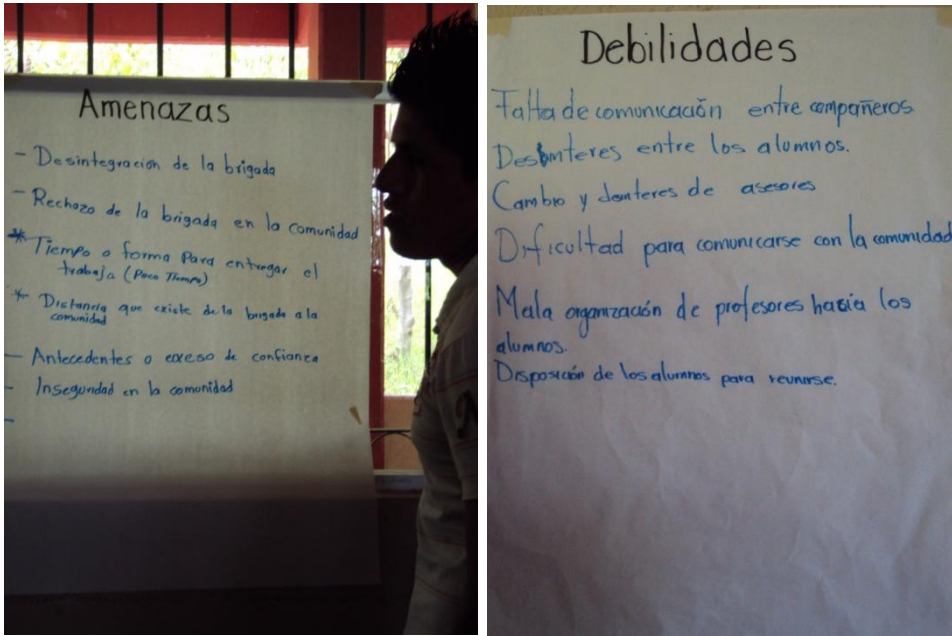 Amenazas
- Desintegracion de la brigada
- Rechazo de la brigada en la comunidad
* Tiempo o forma para entregar el
trabajo (Poco Tiempo)
* Distancia que existe de la brigada a la
comunidad
- Antecedentes o exeso de confianza
- Inseguridad en la comunidad
-
Debilidades
Falta de comunicación entre compañeros
Desinteres entre los alumnos.
Cambio y desinteres de asesores
Dificultad para comunicarse con la comunidad
Mala organización de profesores hacia los
alumnos.
Disposición de los alumnos para reunirse.